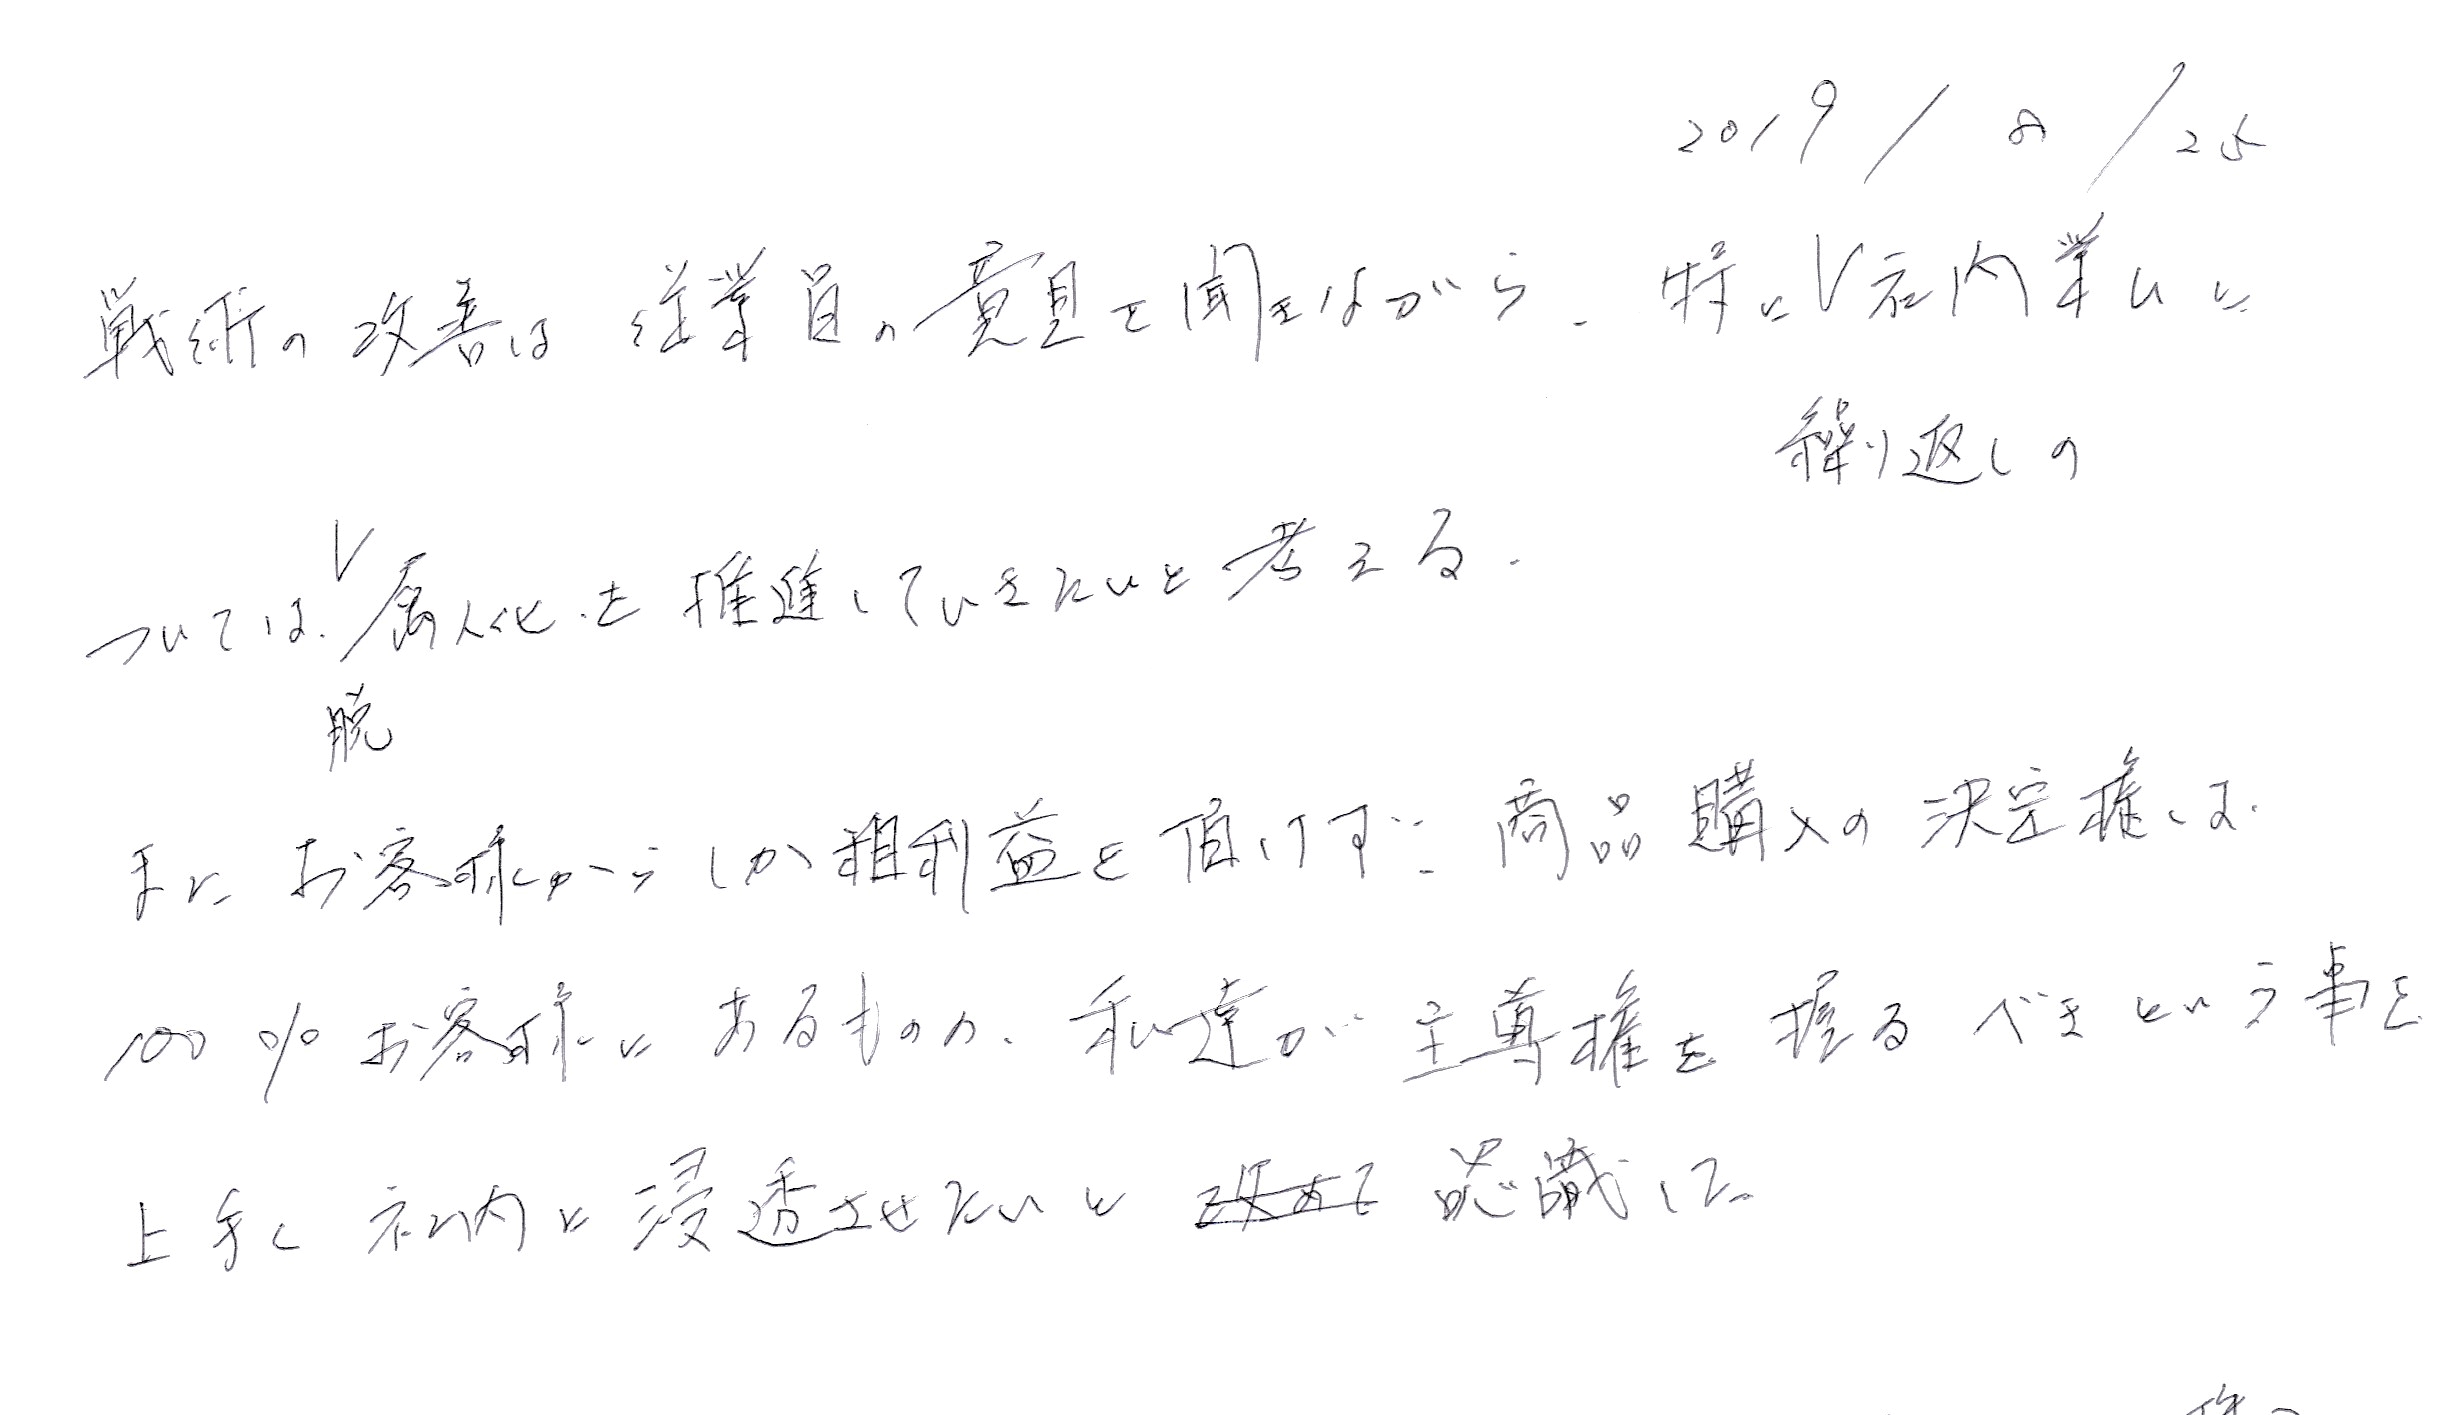 2019/8/25
戦術の改善は従業員の意見を聞きながら、特にV社内業ムに
繰り返しの
ついては、V属人化を推進していきたいと考える。
脱
またお客様からしか粗利益を頂けず、商品購入の決定権は、
100%お客様にあるものの、私達が主導権を握るべきという事を
上手く社内に浸透させたいと改めて認識した。